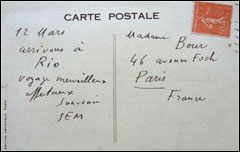 CARTE POSTALE
12 Mars
arrivons à
Rio
voyage merveilleux
affectueux
souvenir
SEM
Madame
Bour
46 avenue Foch
Paris
France